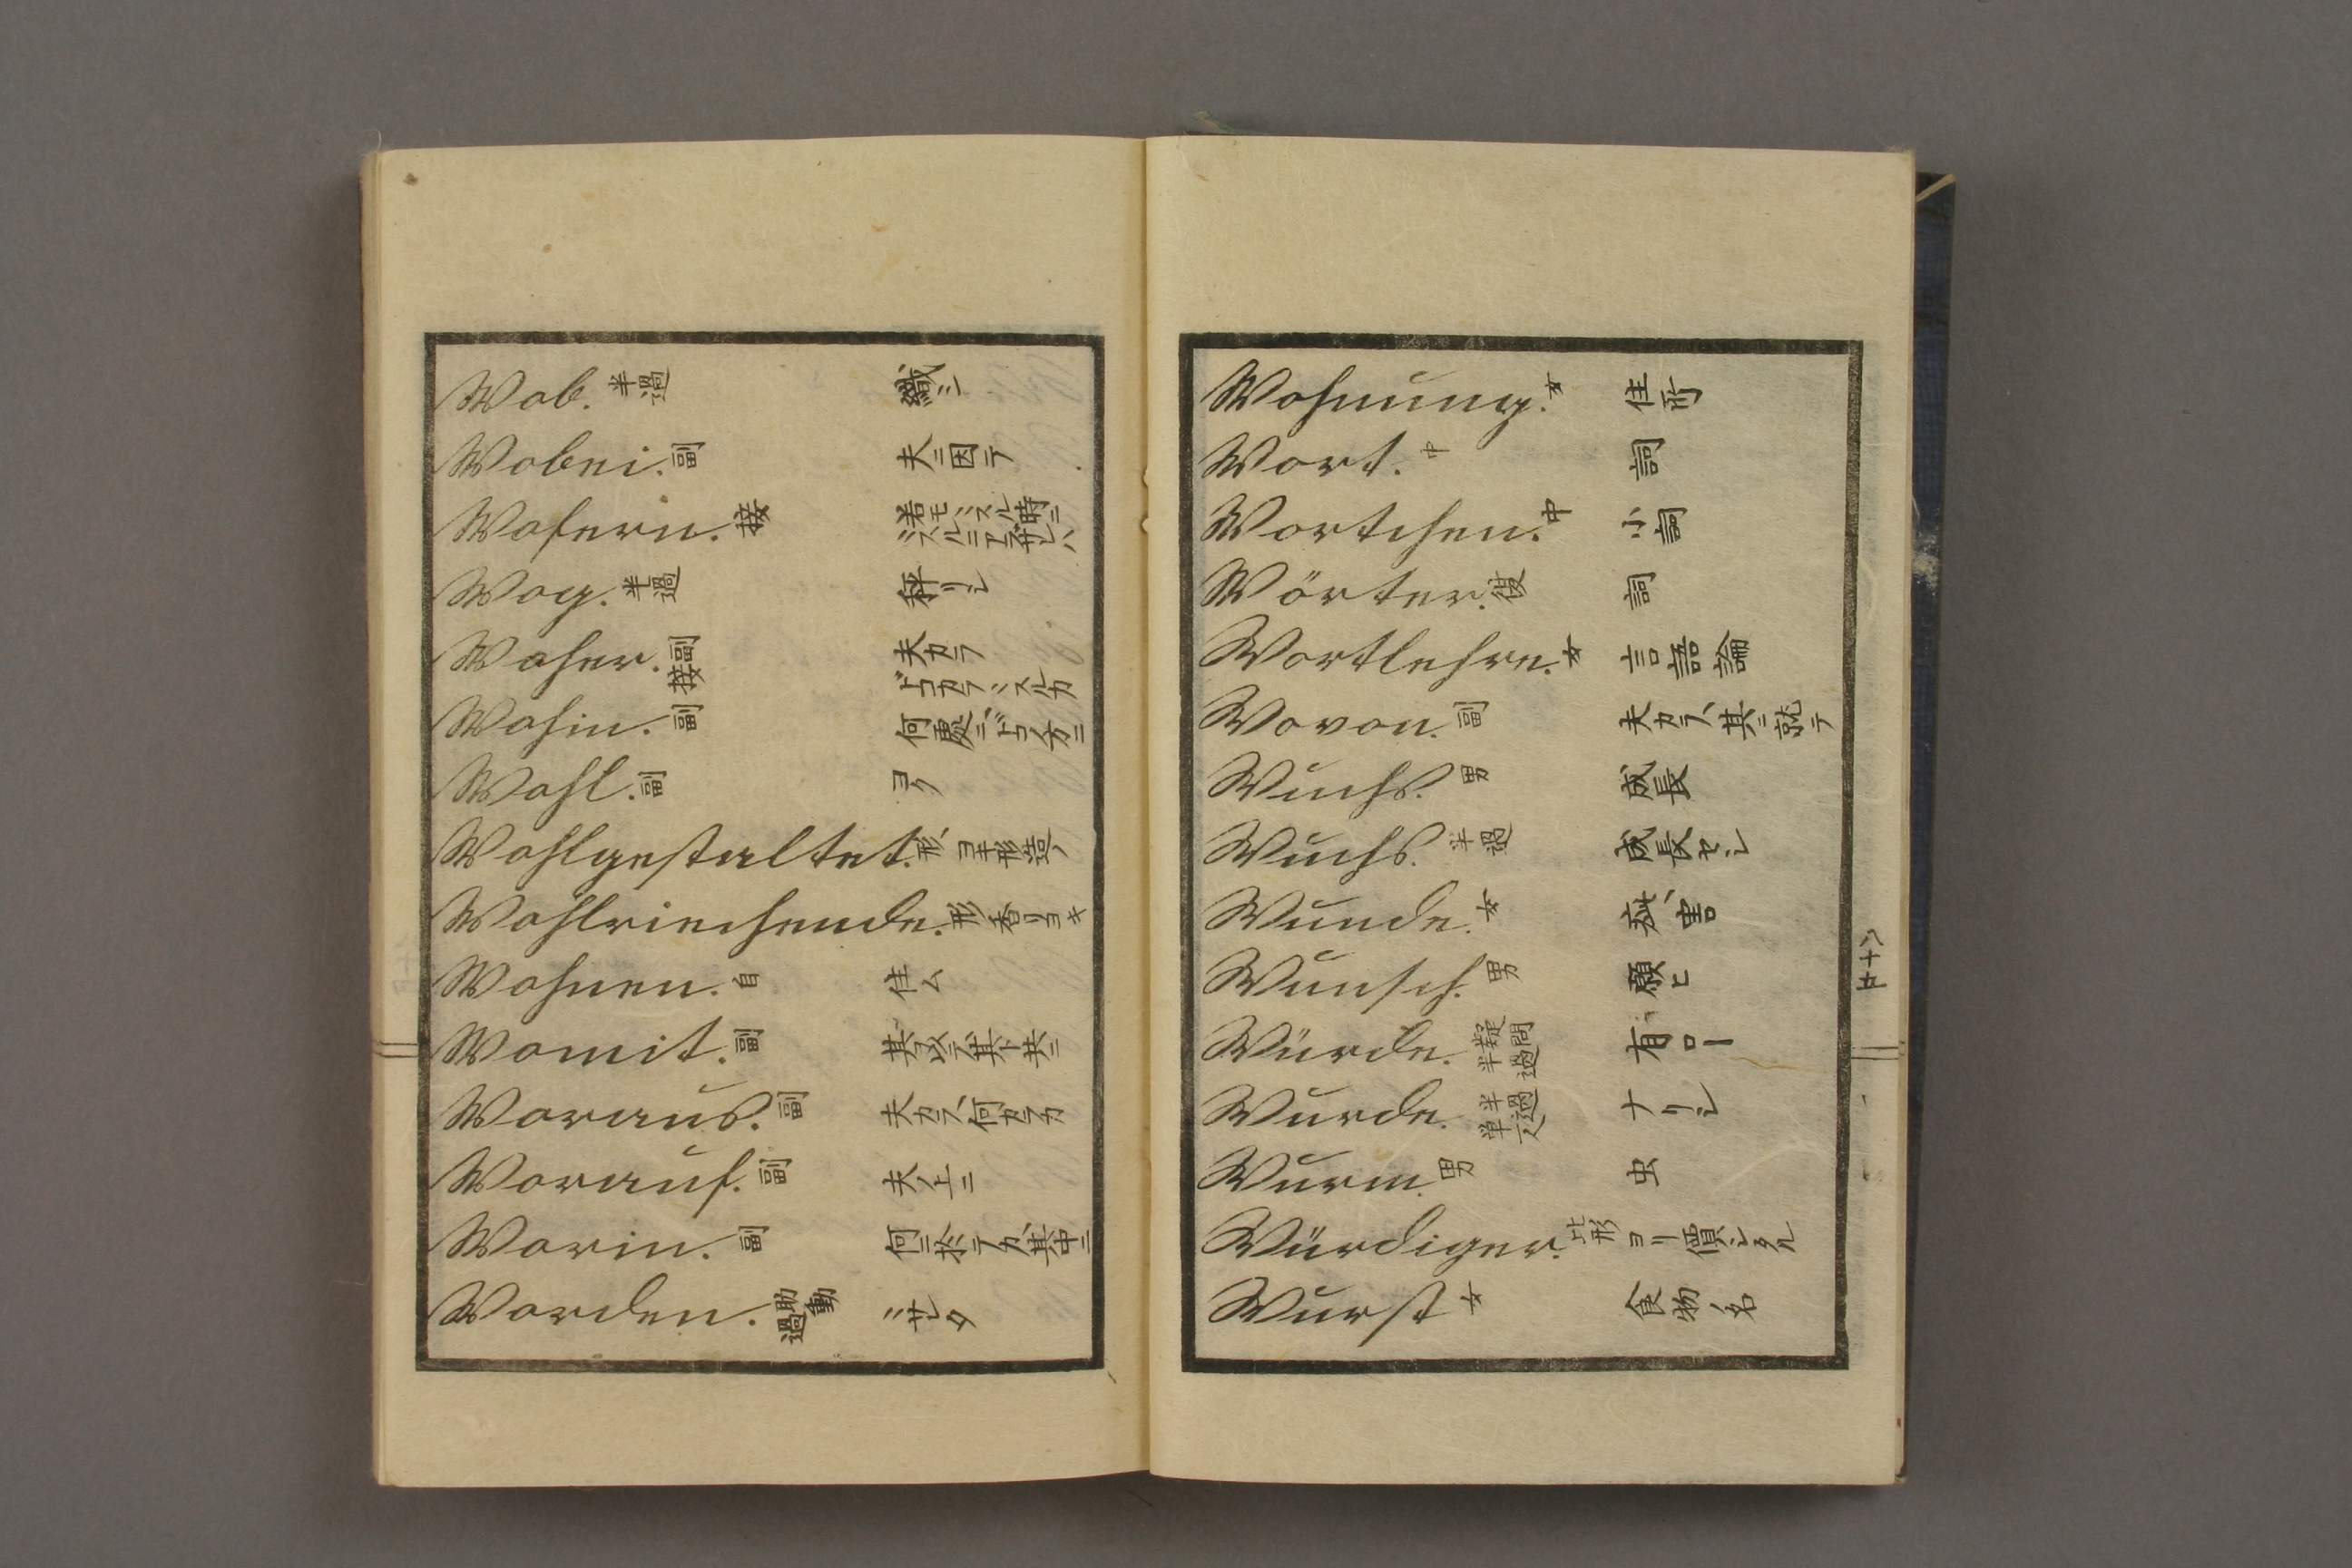 Wob. 半過 織ミシ
Wobei. 副 夫ニ因テ
Wofern. 接 若モミスル時ニ
Wog. 半過 秤リシ
Woher. 副 接 夫カラ
Wohin. 副 何處ニ
Wohl. 副 ヨク
Wohlgestaltet. 形 ヨキ形造ノ
Wohlriechende. 形 香リヨキ
Wohnen. 自 住ム
Womit. 副 其ト共ニ
Woraus. 副 夫カラ、何カラカ
Worauf. 副 夫ノ上ニ
Worin. 副 何ニ於テカ、其中ニ
Worden. 助動過 ミサレタ
Wohnung. 女 住所
Wort. 中 詞
Wortchen. 中 小詞
Wörter. 複 詞
Wortlehre. 女 言語論
Wovon. 副 夫カラ、其ニ就テ
Wuchs. 男 成長
Wuchs. 半過 成長セシ
Wunde. 女 疵、害
Wunsch. 男 願ヒ
Würde. 半疑問 半過 有ロー
Wurde. 半過 ナリシ
Wurm. 男 虫
Würdiger. 比形 ヨリ價シタル
Wurst 女 食物ノ名
廿十八